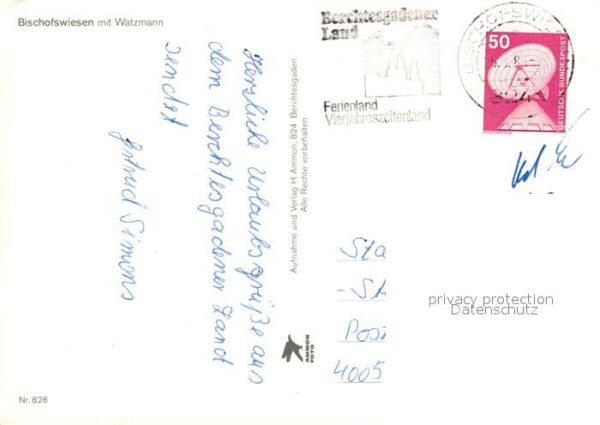 Bischofswiesen mit Watzmann
Herzliche Urlaubsgrüße aus
dem Berchtesgadener Land
sendet
Gertrud Simons
Nr. 828
Aufnahme und Verlag H. Ammon, 824 Berchtesgaden
Alle Rechte vorbehalten
AMMON
FOTO
Berchtesgadener
Land
Ferienland
Vierjahreszeitenland
BISCHOFSWIE
50
DEUTSCHE BUNDESPOST
Sta
-St
Pos
4005
privacy protection
Datenschutz